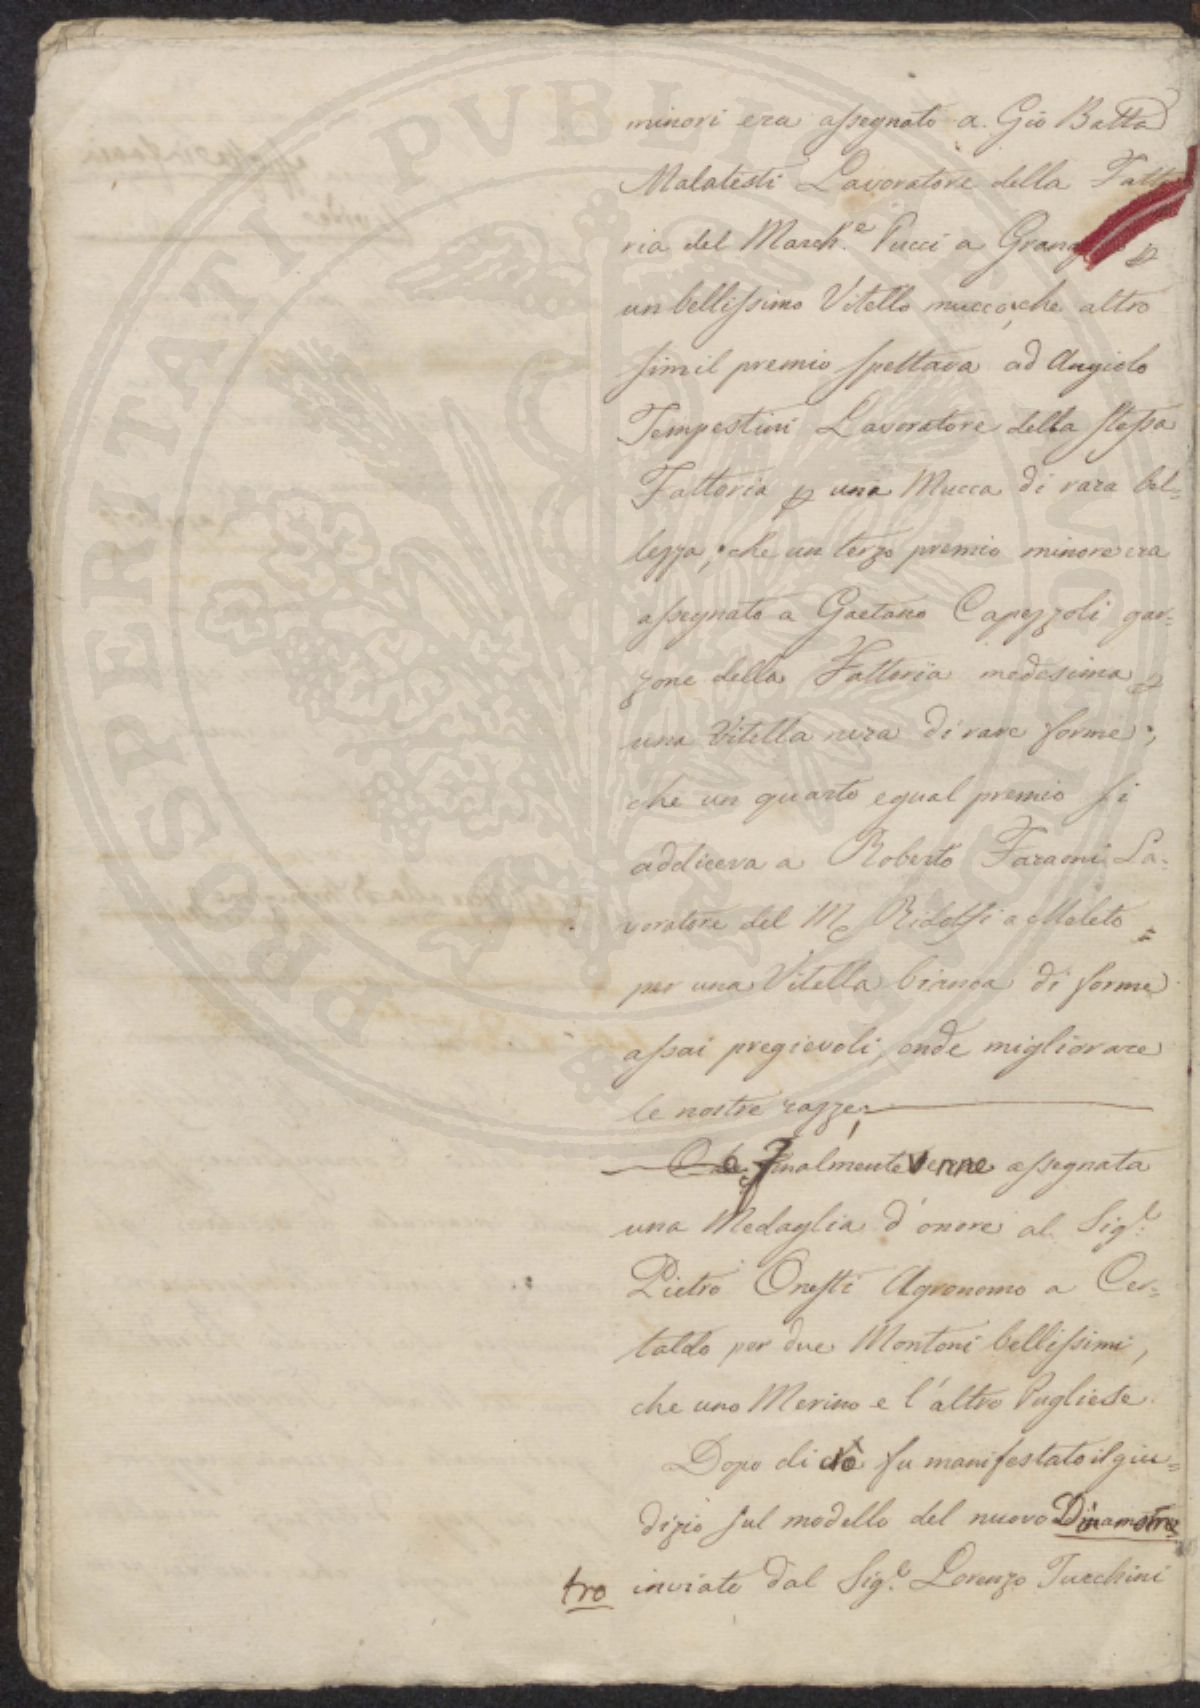 PROSPERITATI PVBLICAE
minori era assegnato a Gio Batta
Malatesti Lavoratore della Fatto
ria del March.e Pucci a Grana p
un bellissimo Vitello mucco, che altro
simil premio spettava ad Angiolo
Tempestini Lavoratore della stessa
Fattoria p una Mucca di rara bel=
lezza; che un terzo premio minore era
assegnato a Gaetano Capezzoli gar=
zone della Fattoria medesima p
una Vitella nera di rare forme;
che un quarto egual premio si
addiceva a Roberto Faraoni La=
voratore del Me Ridolfi a Meleto =
per una Vitella bianca di forme
assai pregievoli, onde migliorare
le nostre razze.
E finalmente venne assegnata
una Medaglia d'onore al Sig.e
Pietro Onesti Agronomo a Cer=
taldo per due Montoni bellissimi,
che uno Merino e l'altro Pugliese.
Dopo di ciò fu manifestato il giu=
dizio sul modello del nuovo Dinamome
tro inviato dal Sig.e Lorenzo Turchini